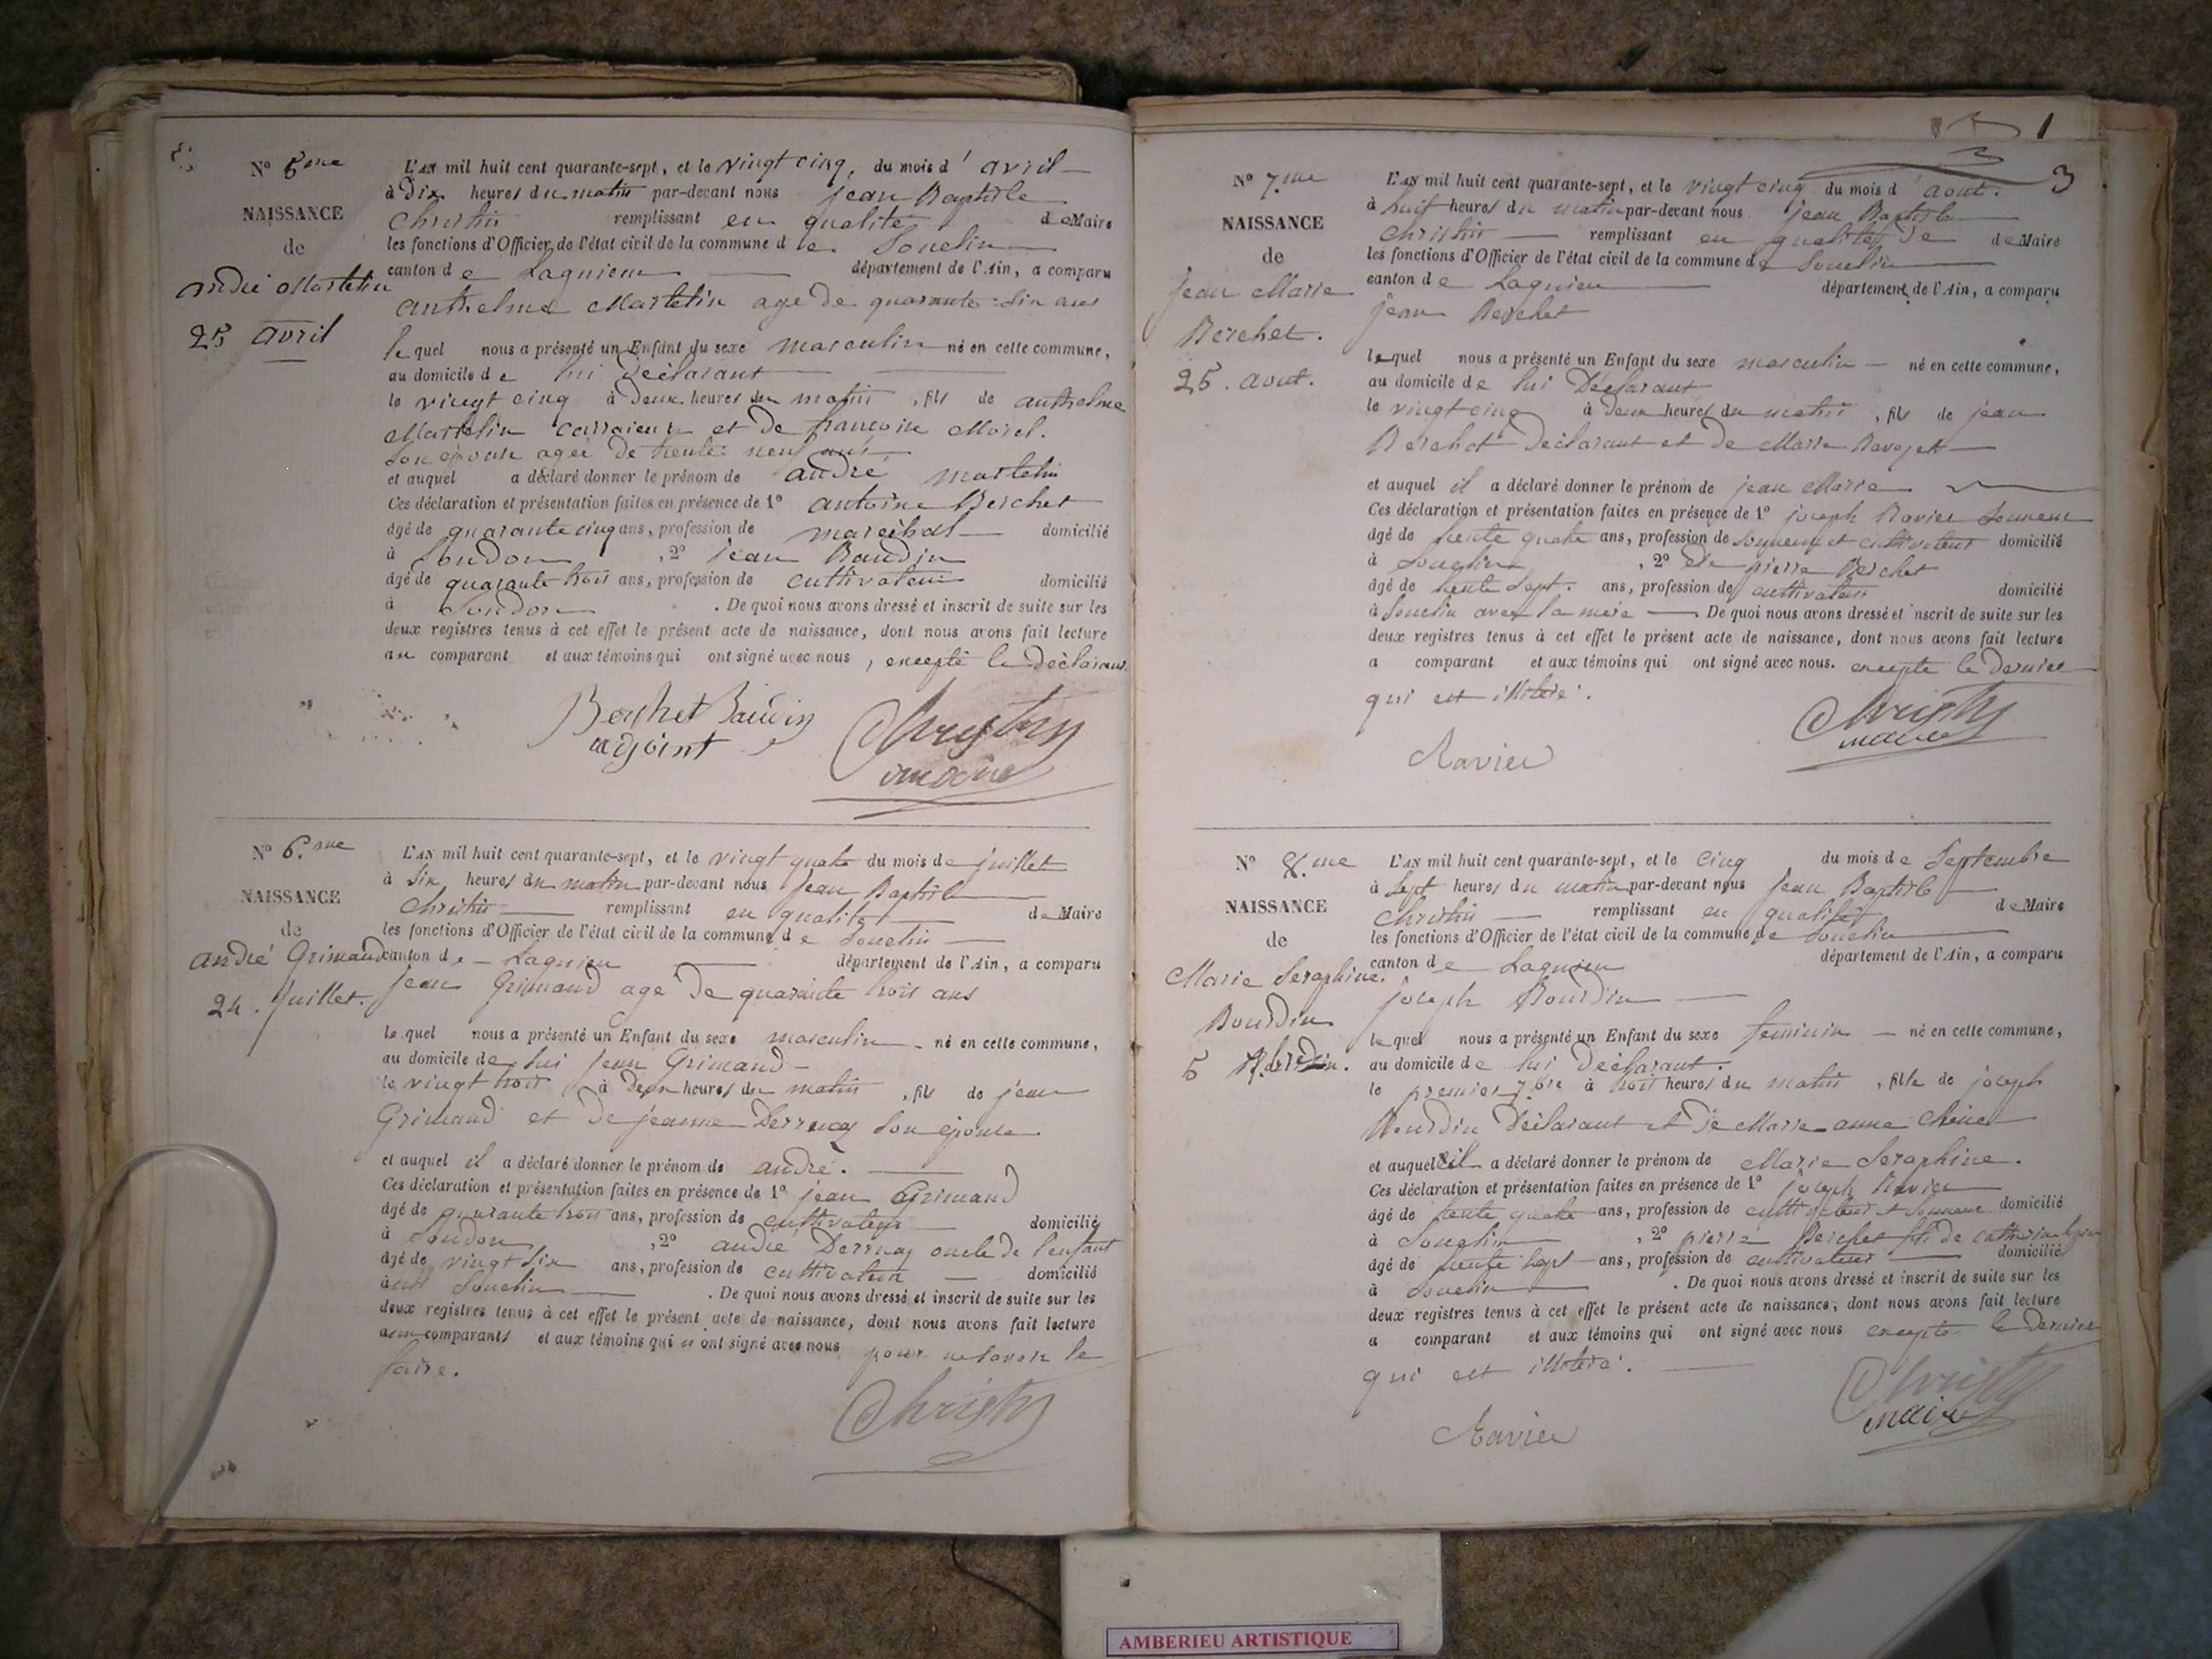 N° 5me
NAISSANCE
de
andré Martelin
25 avril
L'AN mil huit cent quarante-sept, et le vingt cinq, du mois d' avril
à Dix heures du matin par-devant nous jean Baptiste
Christin remplissant en qualité de Maire
les fonctions d'Officier de l'état civil de la commune de Souclin
canton de Lagnieu département de l'Ain, a comparu
anthelme Martelin age de quarante-six ans
lequel nous a présenté un Enfant du sexe masculin né en cette commune,
au domicile de lui Déclarant
le vingt cinq à deux heures du matin, fils de anthelme
Martelin et de françoise Morel.
Son épouse agée de trente neuf ans
et auquel a déclaré donner le prénom de andré martelin
Ces déclaration et présentation faites en présence de 1° antoine Berchet
âgé de quarante cinq ans, profession de maréchal domicilié
à Soudon, 2° jean Baudin
âgé de quarante trois ans, profession de cultivateur domicilié
à Soudon. De quoi nous avons dressé et inscrit de suite sur les
deux registres tenus à cet effet le présent acte de naissance, dont nous avons fait lecture
au comparant et aux témoins qui ont signé avec nous, excepté le Déclarant.
Berchet Baudin
adjoint
Christin
maire
N° 6.me
NAISSANCE
de
andré Grimaud
24. juillet.
L'AN mil huit cent quarante-sept, et le vingt quatre du mois de juillet
à Six heures du matin par-devant nous jean Baptiste
Christin remplissant en qualité de Maire
les fonctions d'Officier de l'état civil de la commune de Souclin
canton de Lagnieu département de l'Ain, a comparu
jean Grimaud age de quarante trois ans
lequel nous a présenté un Enfant du sexe masculin né en cette commune,
au domicile de lui jean Grimaud
le vingt trois à deux heures du matin, fils de jean
Grimaud et de jeanne Derrucaz son epouse
et auquel il a déclaré donner le prénom de andré.
Ces déclaration et présentation faites en présence de 1° jean Grimaud
âgé de quarante trois ans, profession de cultivateur domicilié
à Soudon, 2° andré oncle de l'enfant
âgé de vingt six ans, profession de cultivateur domicilié
à Souclin. De quoi nous avons dressé et inscrit de suite sur les
deux registres tenus à cet effet le présent acte de naissance, dont nous avons fait lecture
aux comparants et aux témoins qui n'ont signé avec nous pour ne savoir le
faire.
Christin
1
3
N° 7.me
NAISSANCE
de
jean Marie
Berchet.
25. aout.
L'AN mil huit cent quarante-sept, et le vingt cinq du mois d'aout.
à huit heures du matin par-devant nous jean Baptiste
Christin remplissant en qualité de de Maire
les fonctions d'Officier de l'état civil de la commune de Souclin
canton de Lagnieu département de l'Ain, a comparu
jean Berchet
lequel nous a présenté un Enfant du sexe masculin né en cette commune,
au domicile de lui Déclarant
le vingt cinq à deux heures du matin, fils de jean
Berchet Déclarant et de Marie
et auquel il a déclaré donner le prénom de jean Marie
Ces déclaration et présentation faites en présence de 1° joseph Ravier Sonneur
âgé de trente quatre ans, profession de sonneur et cultivateur domicilié
à Souclin, 2° pierre Berchet
âgé de trente sept. ans, profession de cultivateur domicilié
à Souclin avec sa mère De quoi nous avons dressé et inscrit de suite sur les
deux registres tenus à cet effet le présent acte de naissance, dont nous avons fait lecture
a comparant et aux témoins qui ont signé avec nous. excepte le dernier
qui est illitéré.
Ravier
Christin
maire
N° 8.me
NAISSANCE
de
Marie Seraphine.
Bourdin
5
L'AN mil huit cent quarante-sept, et le cinq du mois de Septembre
à Sept heures du matin par-devant nous jean Baptiste
Christin remplissant en qualité de Maire
les fonctions d'Officier de l'état civil de la commune de Souclin
canton de Lagnieu département de l'Ain, a comparu
joseph Bourdin
lequel nous a présenté un Enfant du sexe féminin né en cette commune,
au domicile de lui Déclarant.
le premier 7bre à trois heures du matin, fille de joseph
Bourdin Déclarant et de Marie anne Chêne
et auquel il a déclaré donner le prénom de Marie Seraphine.
Ces déclaration et présentation faites en présence de 1° joseph Ravier
âgé de trente quatre ans, profession de cultivateur et sonneur domicilié
à Souclin, 2° pierre Berchet fils de
âgé de trente sept ans, profession de cultivateur domicilié
à Souclin. De quoi nous avons dressé et inscrit de suite sur les
deux registres tenus à cet effet le présent acte de naissance, dont nous avons fait lecture
a comparant et aux témoins qui ont signé avec nous excepte le dernier
qui est illitéré.
Ravier
Christin
maire
AMBERIEU ARTISTIQUE